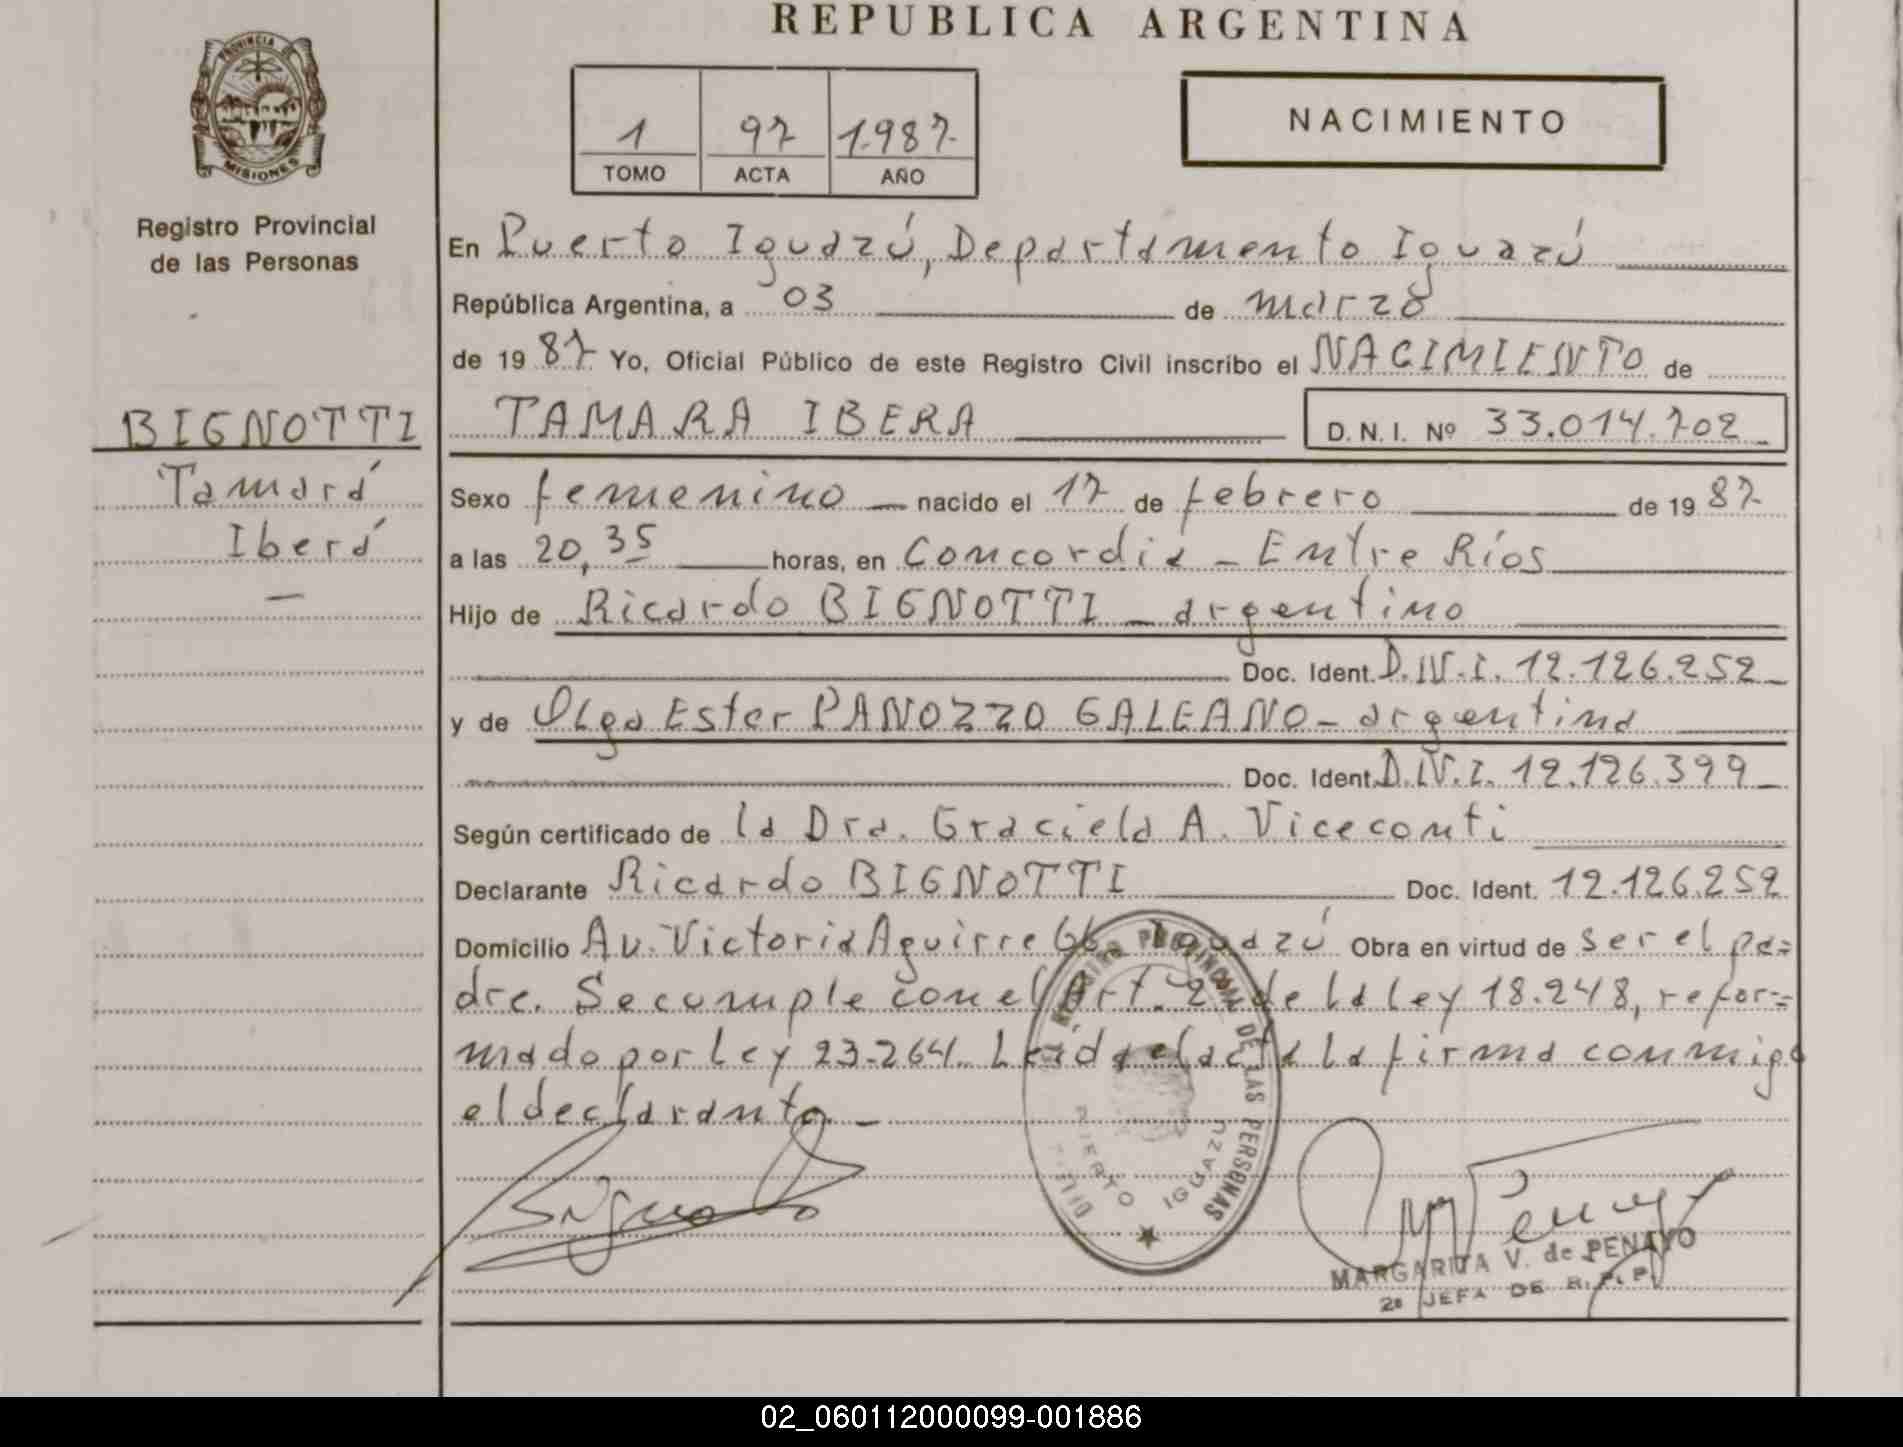 REPUBLICA ARGENTINA
PROVINCIA DE
MISIONES
Registro Provincial
de las Personas
1 97 1.987.
TOMO ACTA AÑO
NACIMIENTO
En Puerto Iguazú, Departamento Iguazú
República Argentina, a 03 de marzo
de 19 87 Yo, Oficial Público de este Registro Civil inscribo el NACIMIENTO de
BIGNOTTI
Tamará
Iberá
TAMARA IBERA D. N. I. Nº 33.014.702
Sexo femenino nacido el 17 de febrero de 19 87
a las 20,35 horas, en Concordia - Entre Ríos
Hijo de Ricardo BIGNOTTI - argentino
Doc. Ident. D.N.I. 12.126.252
y de Olga Ester PANOZZO GALEANO - argentina
Doc. Ident. D.N.I. 12.126.399
Según certificado de la Dra. Graciela A. Viceconti
Declarante Ricardo BIGNOTTI Doc. Ident. 12.126.252
Domicilio Av. Victoria Aguirre 66 Iguazú Obra en virtud de ser el pa=
dre. Se cumple con el Art. 2 de la Ley 18.248, refor=
mado por Ley 23.264. Leída el acta la firma conmigo
el declarante. -
REGISTRO PROVINCIAL DE LAS PERSONAS
PUERTO IGUAZU
MARGARITA V. de PENAYO
2º JEFA DE R. P. P.
02_060112000099-001886